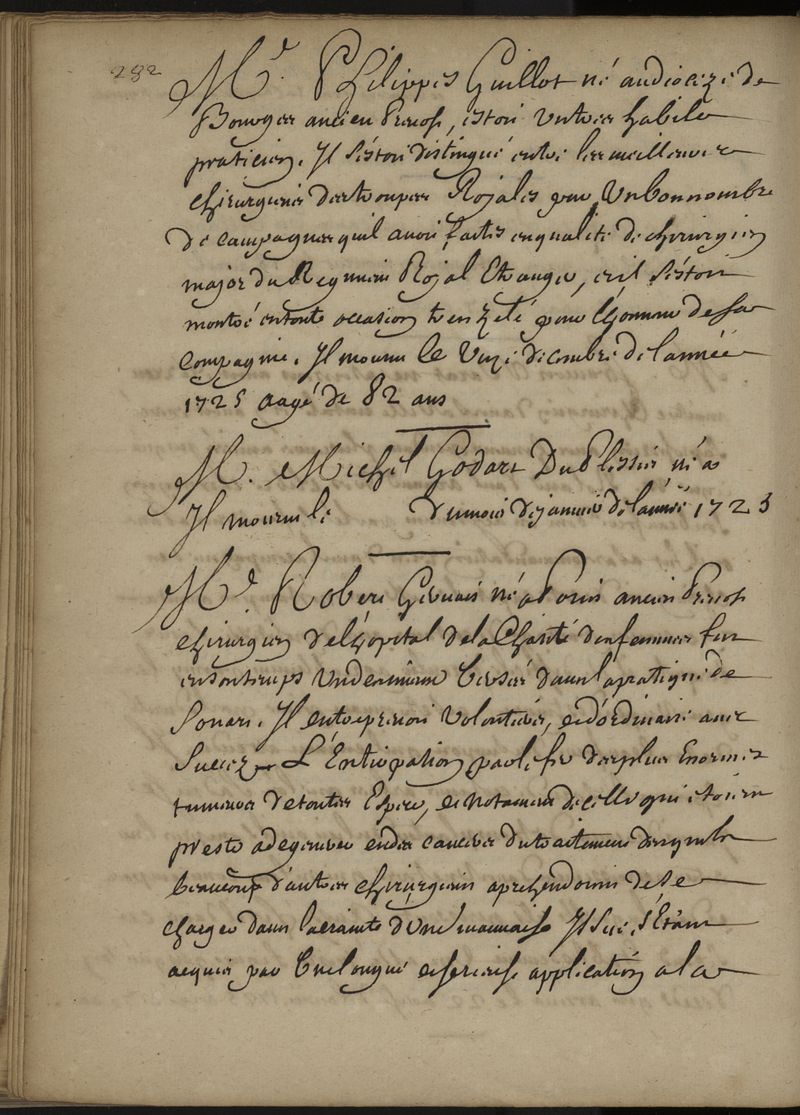 282
Mr. Philippes Guillot né au dioceze de
Bourges ancien Prevost, estoit un tres habile
praticien. Il s'éstoit distingué entre les meilleurs
chirurgiens des troupes Royales par un bon nombre
de campagnes qu'il avoit faites en qualité de chirurgien
major du Regiment Royal Etranger, et il s'éstoit
montré en toute occasion tres zelé pour l'honneur de sa
Compagnie. Il mourut le unze decembre de l'année
1725 aagé de 82 ans
M. Michel Godart Du Plessis né a
Il mourut le du mois de janvier de l'année 1725
Mr. Robert Gervais né a Paris ancien Prevost
chirurgien de l'hopital de la Charité des femmes fut
en son temps un des mieux versés dans la pratique de
son art. Il entreprenoit volontiers, et d'ordinaire avec
succez L'Extirpation par le fer des plus Enormes
tumeurs de toutes Espece, et notament de celles qui etoient
prestes a degenerer en des cancers du traitement desquels
beaucoup d'autres chirurgiens aprehendoient de se
charger dans la crainte d'une mauvaise Issuë, s'Etant
acquis par une longue et serieuse application a la